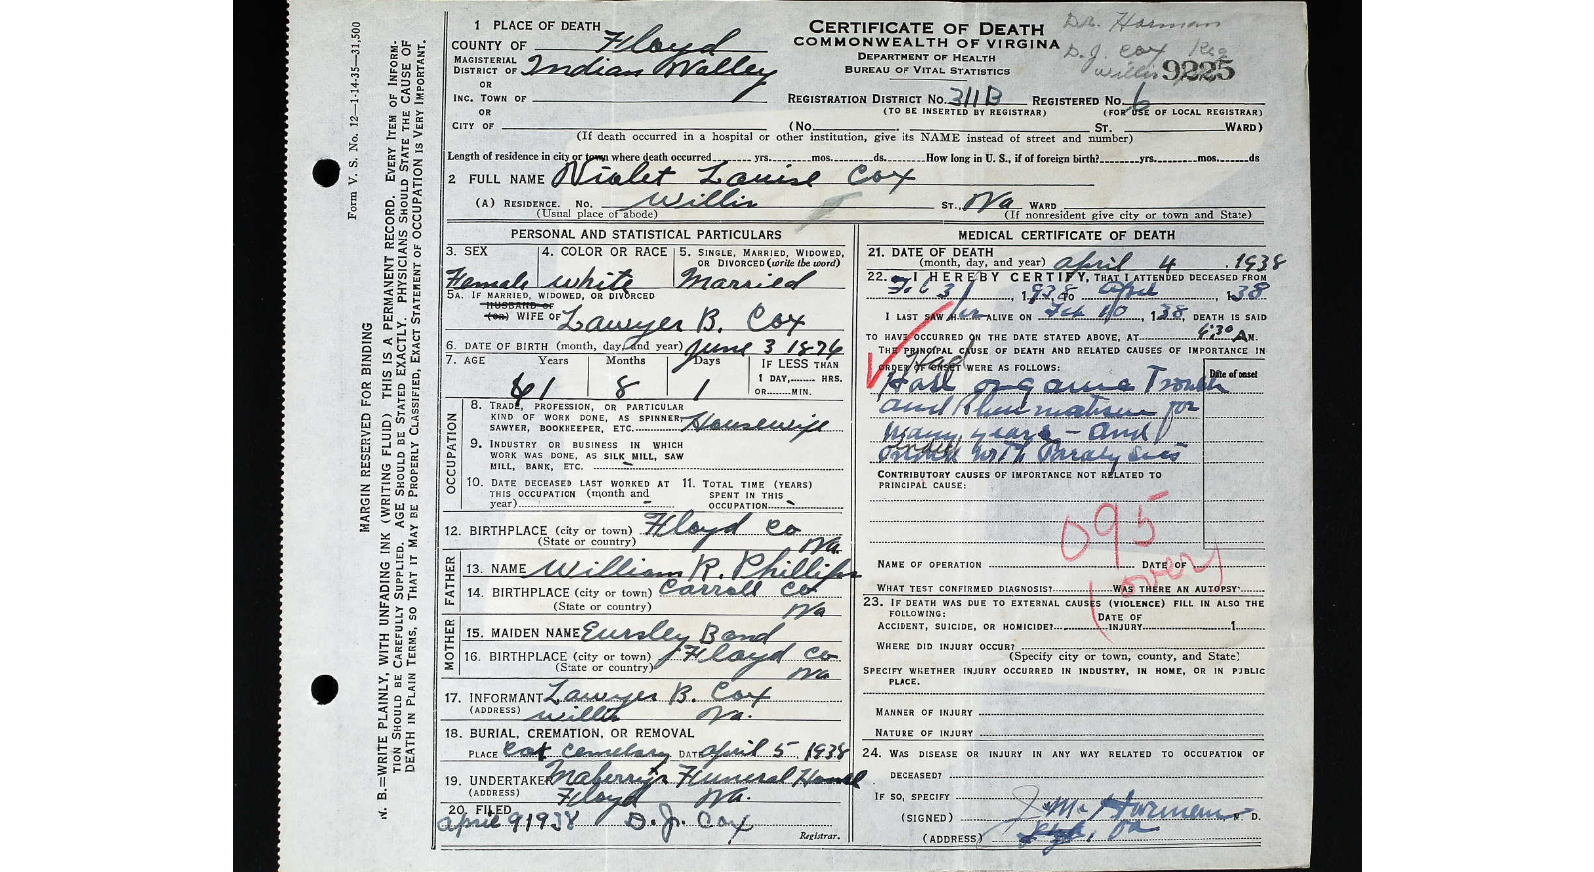 Form V. S. No. 12—1-14-35—31,500
MARGIN RESERVED FOR BINDING
N. B.=WRITE PLAINLY, WITH UNFADING INK (WRITING FLUID) THIS IS A PERMANENT RECORD. EVERY ITEM OF INFORM-
TION SHOULD BE CAREFULLY SUPPLIED. AGE SHOULD BE STATED EXACTLY. PHYSICIANS SHOULD STATE THE CAUSE OF
DEATH IN PLAIN TERMS, SO THAT IT MAY BE PROPERLY CLASSIFIED, EXACT STATEMENT OF OCCUPATION IS VERY IMPORTANT.
1 PLACE OF DEATH
COUNTY OF Floyd
MAGISTERIAL
DISTRICT OF Indian Valley
OR
INC. TOWN OF
OR
CITY OF
CERTIFICATE OF DEATH
COMMONWEALTH OF VIRGINA
DEPARTMENT OF HEALTH
BUREAU OF VITAL STATISTICS
Dr. Harman
D.J. Cox Reg
Willis 9225
REGISTRATION DISTRICT NO. 311B REGISTERED NO. 6
(TO BE INSERTED BY REGISTRAR) (FOR USE OF LOCAL REGISTRAR)
(No. ST. WARD)
(If death occurred in a hospital or other institution, give its NAME instead of street and number)
Length of residence in city or town where death occurred yrs. mos. ds. How long in U. S., if of foreign birth? yrs. mos. ds
2 FULL NAME Violet Louise Cox
(A) RESIDENCE. No. Willis ST., Va WARD
(Usual place of abode) (If nonresident give city or town and State)
PERSONAL AND STATISTICAL PARTICULARS
3. SEX 4. COLOR OR RACE 5. SINGLE, MARRIED, WIDOWED,
OR DIVORCED (write the word)
Female White Married
5A. IF MARRIED, WIDOWED, OR DIVORCED
HUSBAND OF
(OR) WIFE OF Lawyer B. Cox
6. DATE OF BIRTH (month, day, and year) June 3 1876
7. AGE Years Months Days IF LESS THAN
1 DAY, HRS.
OR MIN.
61 8 1
OCCUPATION
8. TRADE, PROFESSION, OR PARTICULAR
KIND OF WORK DONE, AS SPINNER,
SAWYER, BOOKKEEPER, ETC. Housewife
9. INDUSTRY OR BUSINESS IN WHICH
WORK WAS DONE, AS SILK MILL, SAW
MILL, BANK, ETC.
10. DATE DECEASED LAST WORKED AT
THIS OCCUPATION (month and
year)
11. TOTAL TIME (YEARS)
SPENT IN THIS
OCCUPATION
12. BIRTHPLACE (city or town) Floyd Co
(State or country) Va.
FATHER
13. NAME William R. Phillips
14. BIRTHPLACE (city or town) Carroll Co
(State or country) Va
MOTHER
15. MAIDEN NAME Eursley Bond
16. BIRTHPLACE (city or town) Floyd Co
(State or country) Va
17. INFORMANT Lawyer B. Cox
(ADDRESS) Willis Va.
18. BURIAL, CREMATION, OR REMOVAL
PLACE Cox Cemetary DATE April 5, 1938
19. UNDERTAKER Maberry's Funeral Home
(ADDRESS) Floyd Va.
20. FILED
April 9 1938 D. J. Cox
Registrar.
MEDICAL CERTIFICATE OF DEATH
21. DATE OF DEATH
(month, day, and year) April 4, 1938
22. I HEREBY CERTIFY, THAT I ATTENDED DECEASED FROM
1938 TO April, 1938
I LAST SAW HER ALIVE ON Feb 10, 1938, DEATH IS SAID
TO HAVE OCCURRED ON THE DATE STATED ABOVE, AT 4:30 A M.
THE PRINCIPAL CAUSE OF DEATH AND RELATED CAUSES OF IMPORTANCE IN
ORDER OF ONSET WERE AS FOLLOWS:
Date of onset
Had
and Rheumatism for
many years - and
with Paralysis
CONTRIBUTORY CAUSES OF IMPORTANCE NOT RELATED TO
PRINCIPAL CAUSE:
095
(over)
NAME OF OPERATION DATE OF
WHAT TEST CONFIRMED DIAGNOSIS? WAS THERE AN AUTOPSY
23. IF DEATH WAS DUE TO EXTERNAL CAUSES (VIOLENCE) FILL IN ALSO THE
FOLLOWING:
ACCIDENT, SUICIDE, OR HOMICIDE? DATE OF INJURY 1
WHERE DID INJURY OCCUR?
(Specify city or town, county, and State)
SPECIFY WHETHER INJURY OCCURRED IN INDUSTRY, IN HOME, OR IN PUBLIC
PLACE.
MANNER OF INJURY
NATURE OF INJURY
24. WAS DISEASE OR INJURY IN ANY WAY RELATED TO OCCUPATION OF
DECEASED?
IF SO, SPECIFY
(SIGNED) J. M. Harman M. D.
(ADDRESS) Va